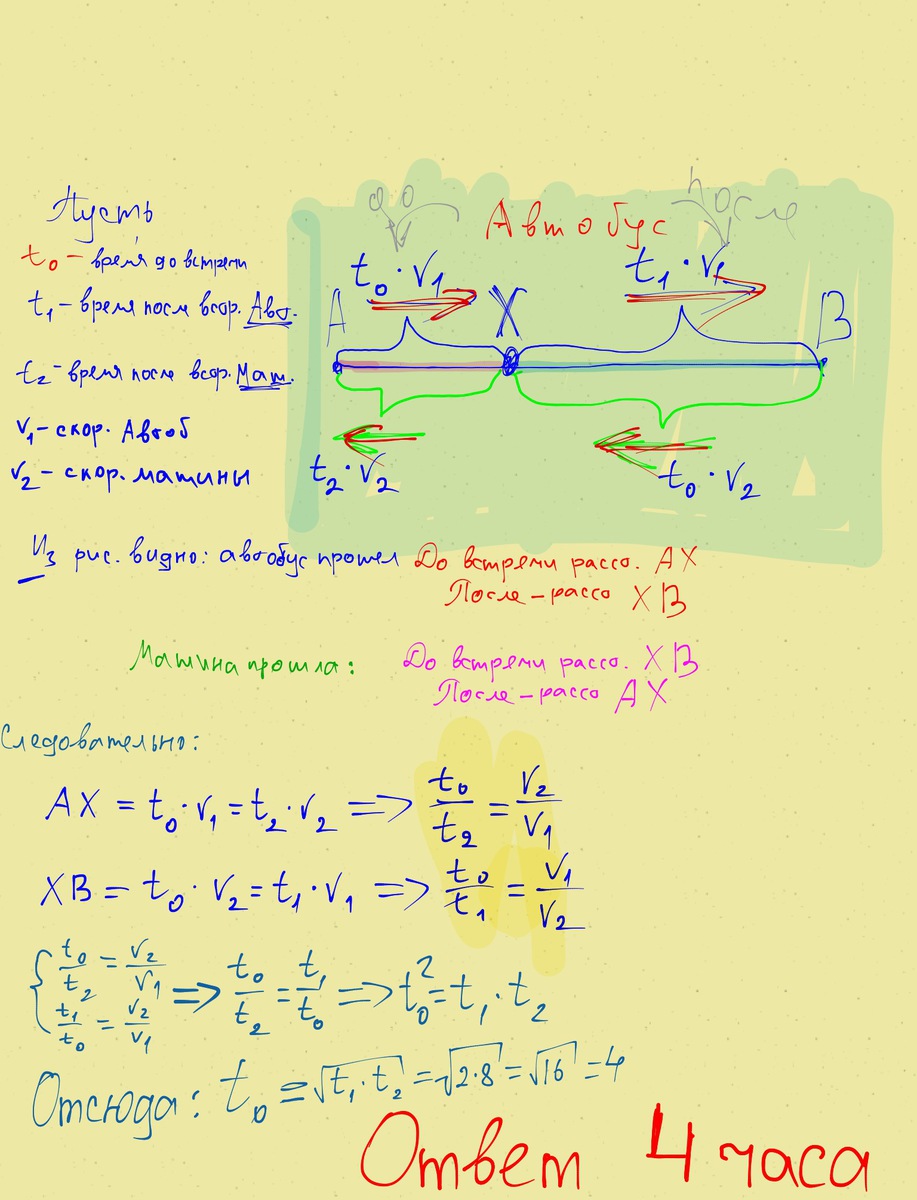 до
после
Пусть
Автобус
t₀ – время до встречи
t₀ · V₁
t₁ · V₁
t₁ – время после встр. Авт.
A
X
B
t₂ – время после встр. Маш.
V₁ – скор. Автоб
V₂ – скор. машины
t₂ · V₂
t₀ · V₂
Из рис. видно: автобус прошел До встречи рассо. AX
После – рассо XB
Машина прошла: До встречи рассо. XB
После – рассо AX
Следовательно:
AX = t₀ · V₁ = t₂ · V₂ => t₀/t₂ = V₂/V₁
XB = t₀ · V₂ = t₁ · V₁ => t₀/t₁ = V₁/V₂
{ t₀/t₂ = V₂/V₁
t₁/t₀ = V₂/V₁ => t₀/t₂ = t₁/t₀ => t₀² = t₁ · t₂
Отсюда: t₀ = √t₁ · t₂ = √2·8 = √16 = 4
Ответ 4 часа